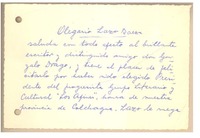 Olegario Lazo Baeza
saluda con todo afecto al brillante
escritor y distinguido amigo don Gon-
zalo Drago, y hace el placer de feli-
citarlo por haber sido elegido Presi-
dente del prestigioso Grupo Literario y
Cultural "Los Inútiles", honra de nuestra
provincia de Colchagua. Lazo le ruega